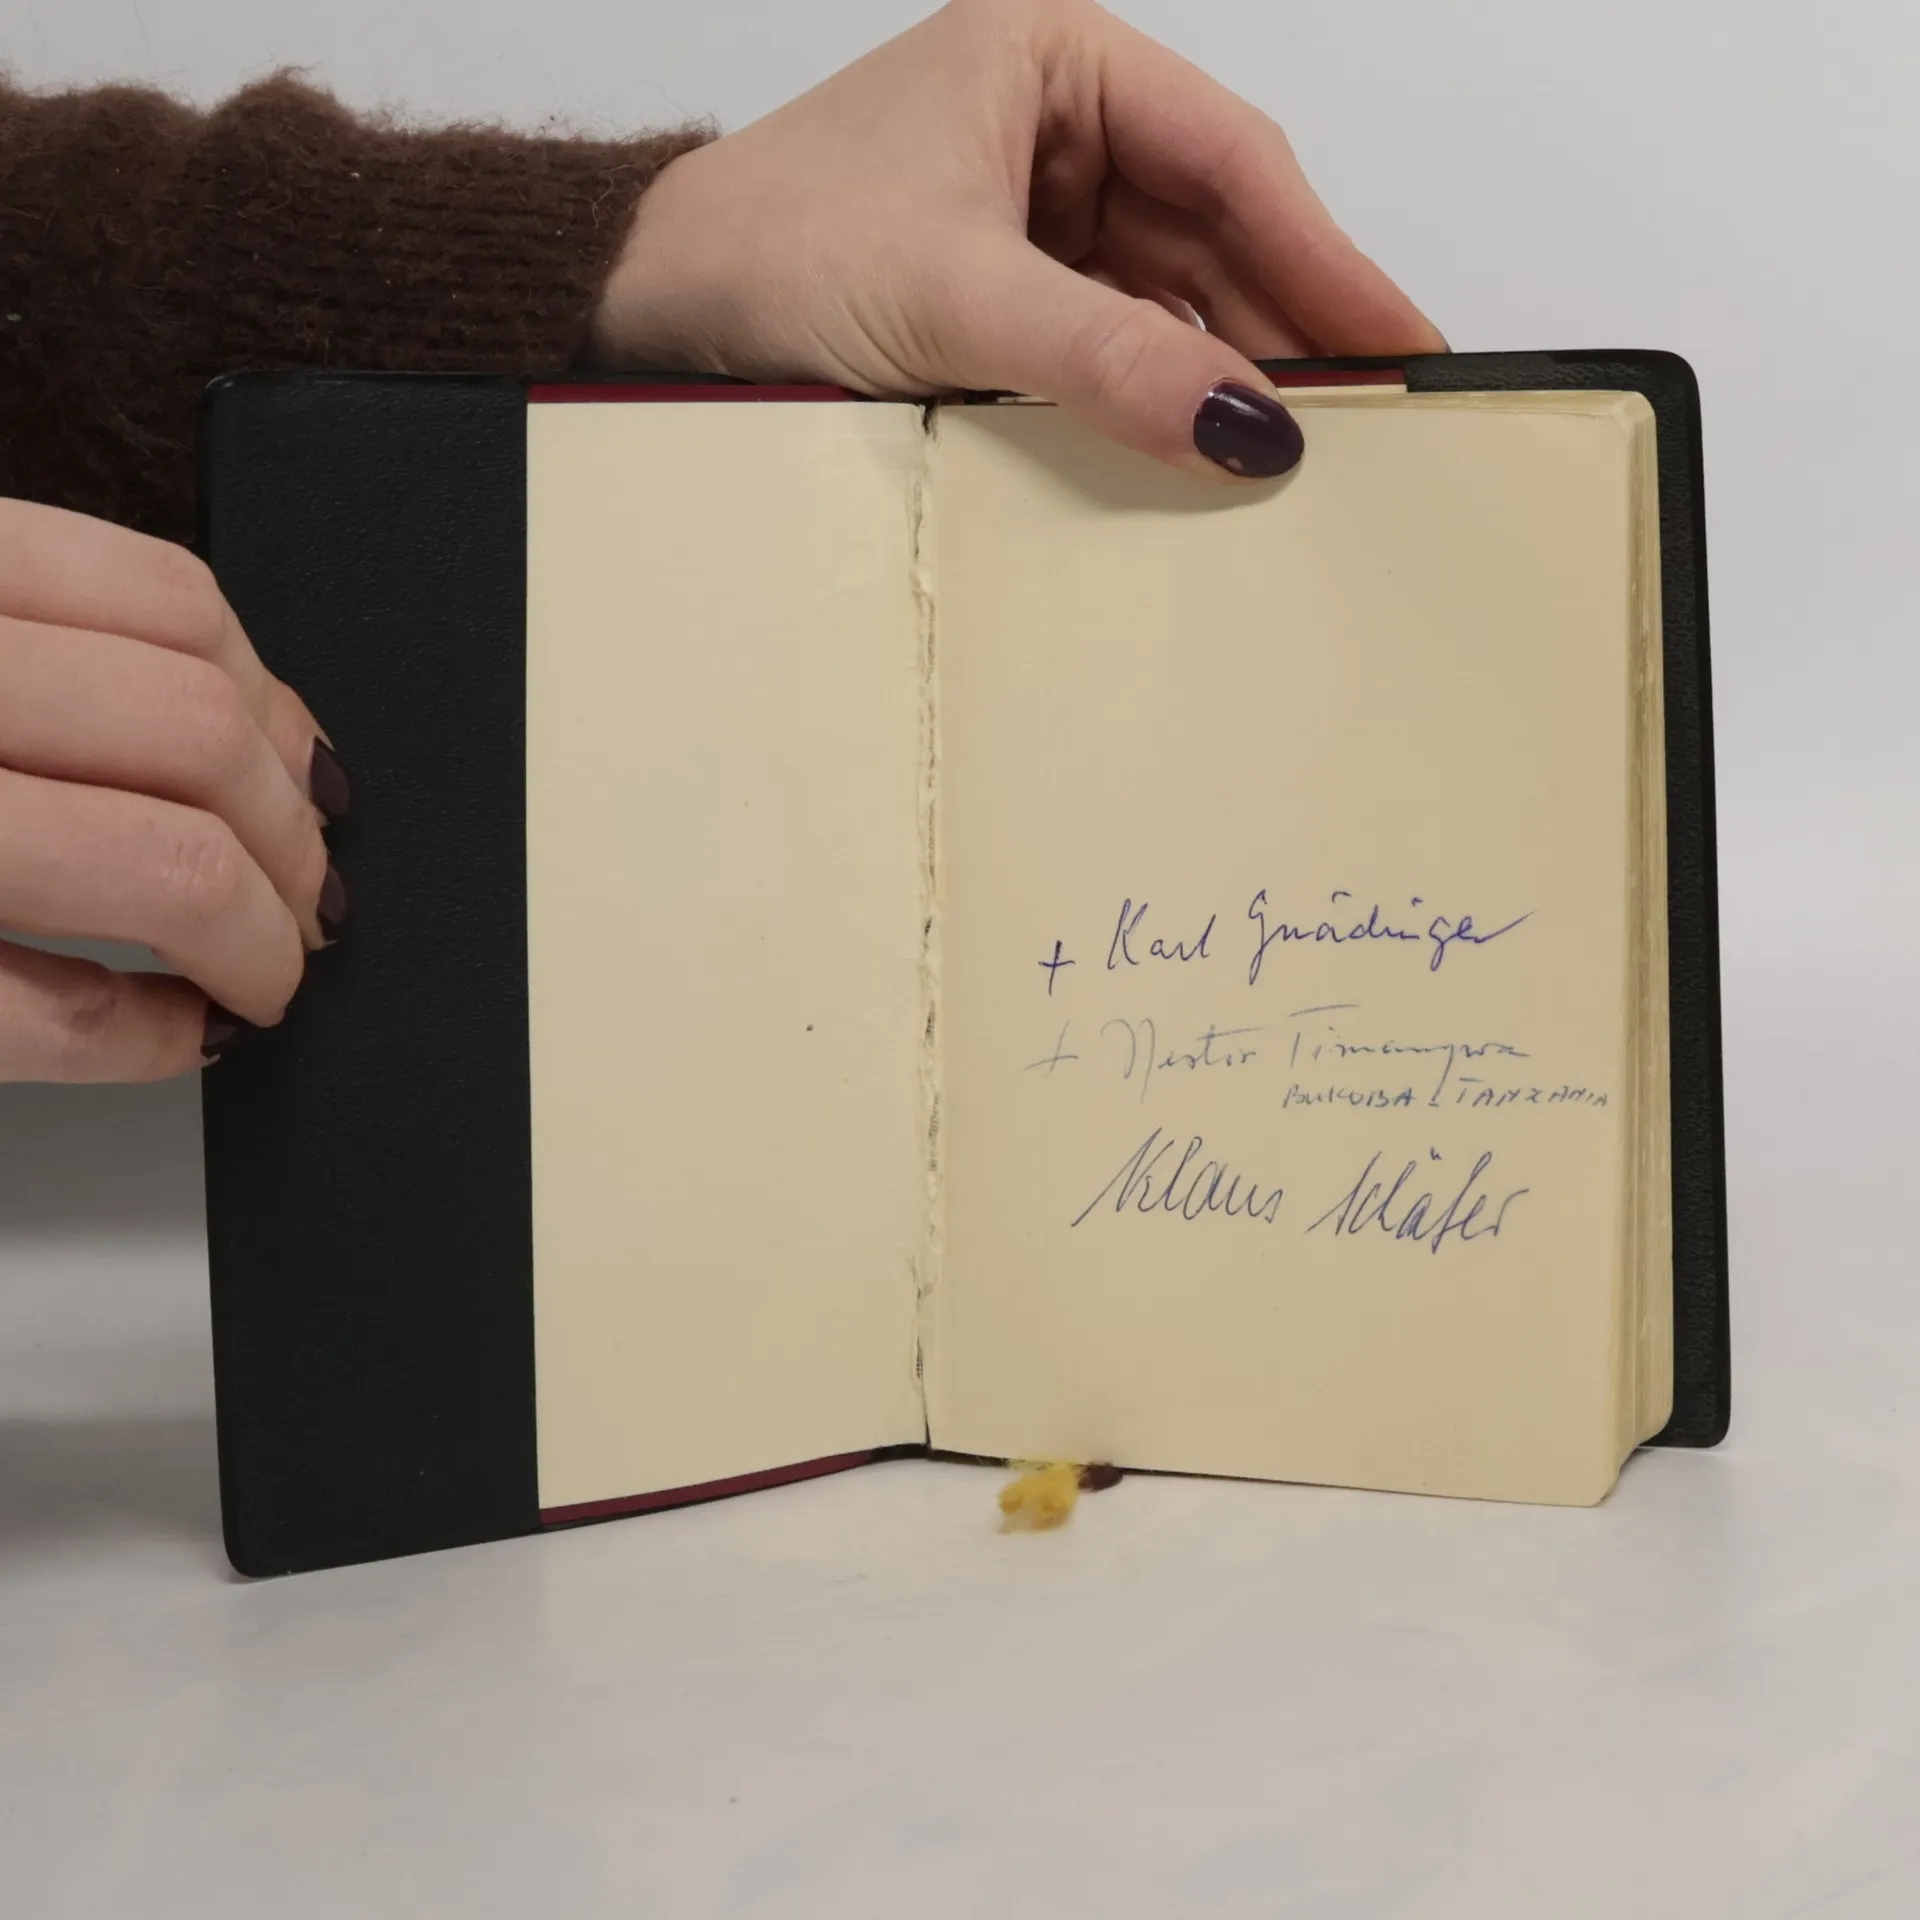 + Karl Gnädinger
+ Nestor Timanywa
BUKOBA - TANZANIA
Klaus Schäfer